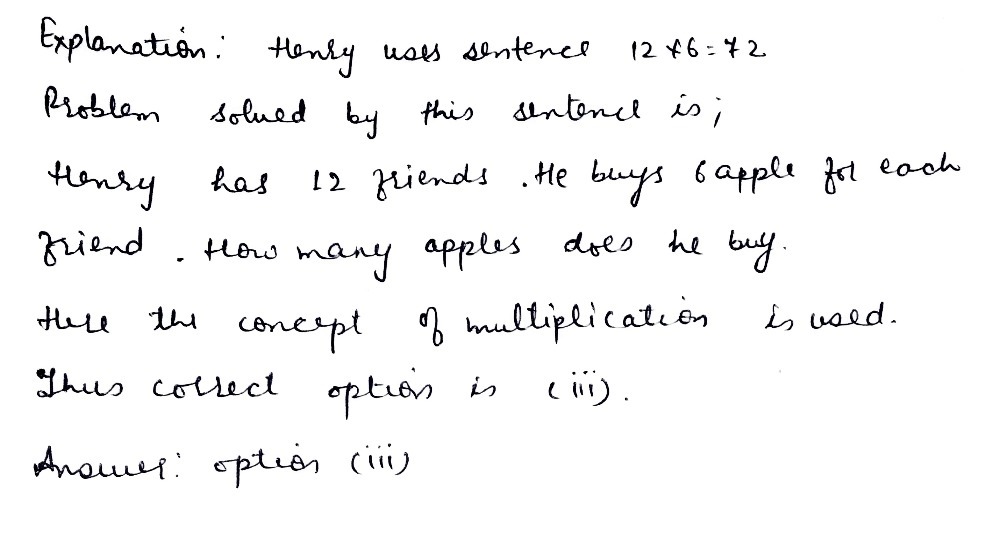 Explanation: Henry uses sentence 12×6=72
Problem solved by this sentence is;
Henry has 12 friends. He buys 6 apple for each
friend. How many apples does he buy.
Here the concept of multiplication is used.
Thus correct option is (iii).
Answer: option (iii)